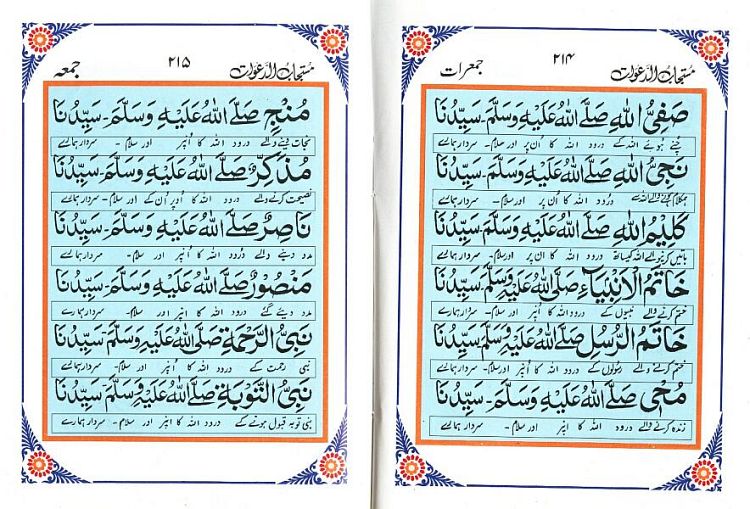 مستجاب الدعوات ۲۱۴ جمعرات
صَفِيُّ اللهِ صَلَّے اللهُ عَلَيْهِ وَسَلَّمَ۔ سَيِّدُنَا
چنے ہوئے اللہ کے درود اللہ کا ان پر اور سلام۔ سردار ہمارے
نَجِيُّ اللهِ صَلَّے اللهُ عَلَيْهِ وَسَلَّمَ۔ سَيِّدُنَا
درود اللہ کا ان پر اور سلام۔ سردار ہمارے
كَلِيْمُ اللهِ صَلَّے اللهُ عَلَيْهِ وَسَلَّمَ۔ سَيِّدُنَا
باتیں کرنیوالے اللہ کیساتھ درود اللہ کا ان پر اور سلام۔ سردار ہمارے
خَاتَمُ الْاَنْبِيَاءِ صَلَّى اللهُ عَلَيْهِ وَسَلَّمَ۔ سَيِّدُنَا
ختم کرنے والے نبیوں کے درود اللہ کا اُنپر اور سلام۔ سردار ہمارے
خَاتَمُ الرُّسُلِ صَلَّے اللهُ عَلَيْهِ وَسَلَّمَ۔ سَيِّدُنَا
ختم کرنے والے رسولوں کے درود اللہ کا اُنپر اور سلام۔ سردار ہمارے
مُحْیٖ صَلَّے اللهُ عَلَيْهِ وَسَلَّمَ۔ سَيِّدُنَا
زندہ کرنے والے درود اللہ کا انپر اور سلام۔ سردار ہمارے
مستجاب الدعوات ۲۱۵ جمعہ
مُنْجٍ صَلَّے اللهُ عَلَيْهِ وَسَلَّمَ۔ سَيِّدُنَا
نجات دینے والے درود اللہ کا اُنپر اور سلام۔ سردار ہمارے
مُذَكِّرٌ صَلَّے اللهُ عَلَيْهِ وَسَلَّمَ۔ سَيِّدُنَا
نصیحت کرنے والے درود اللہ کا اوپر اُن کے اور سلام۔ سردار ہمارے
نَاصِرٌ صَلَّے اللهُ عَلَيْهِ وَسَلَّمَ۔ سَيِّدُنَا
مدد دینے والے درود اللہ کا اُنپر اور سلام۔ سردار ہمارے
مَنْصُوْرٌ صَلَّے اللهُ عَلَيْهِ وَسَلَّمَ۔ سَيِّدُنَا
مدد دیئے گئے درود اللہ کا اُنپر اور سلام۔ سردار ہمارے
نَبِيُّ الرَّحْمَةِ صَلَّى اللهُ عَلَيْهِ وَسَلَّمَ۔ سَيِّدُنَا
نبی رحمت کے درود اللہ کا اُنپر اور سلام۔ سردار ہمارے
نَبِيُّ التَّوْبَةِ صَلَّے اللهُ عَلَيْهِ وَسَلَّمَ۔ سَيِّدُنَا
نبی توبہ قبول ہونے کے درود اللہ کا انپر اور سلام۔ سردار ہمارے